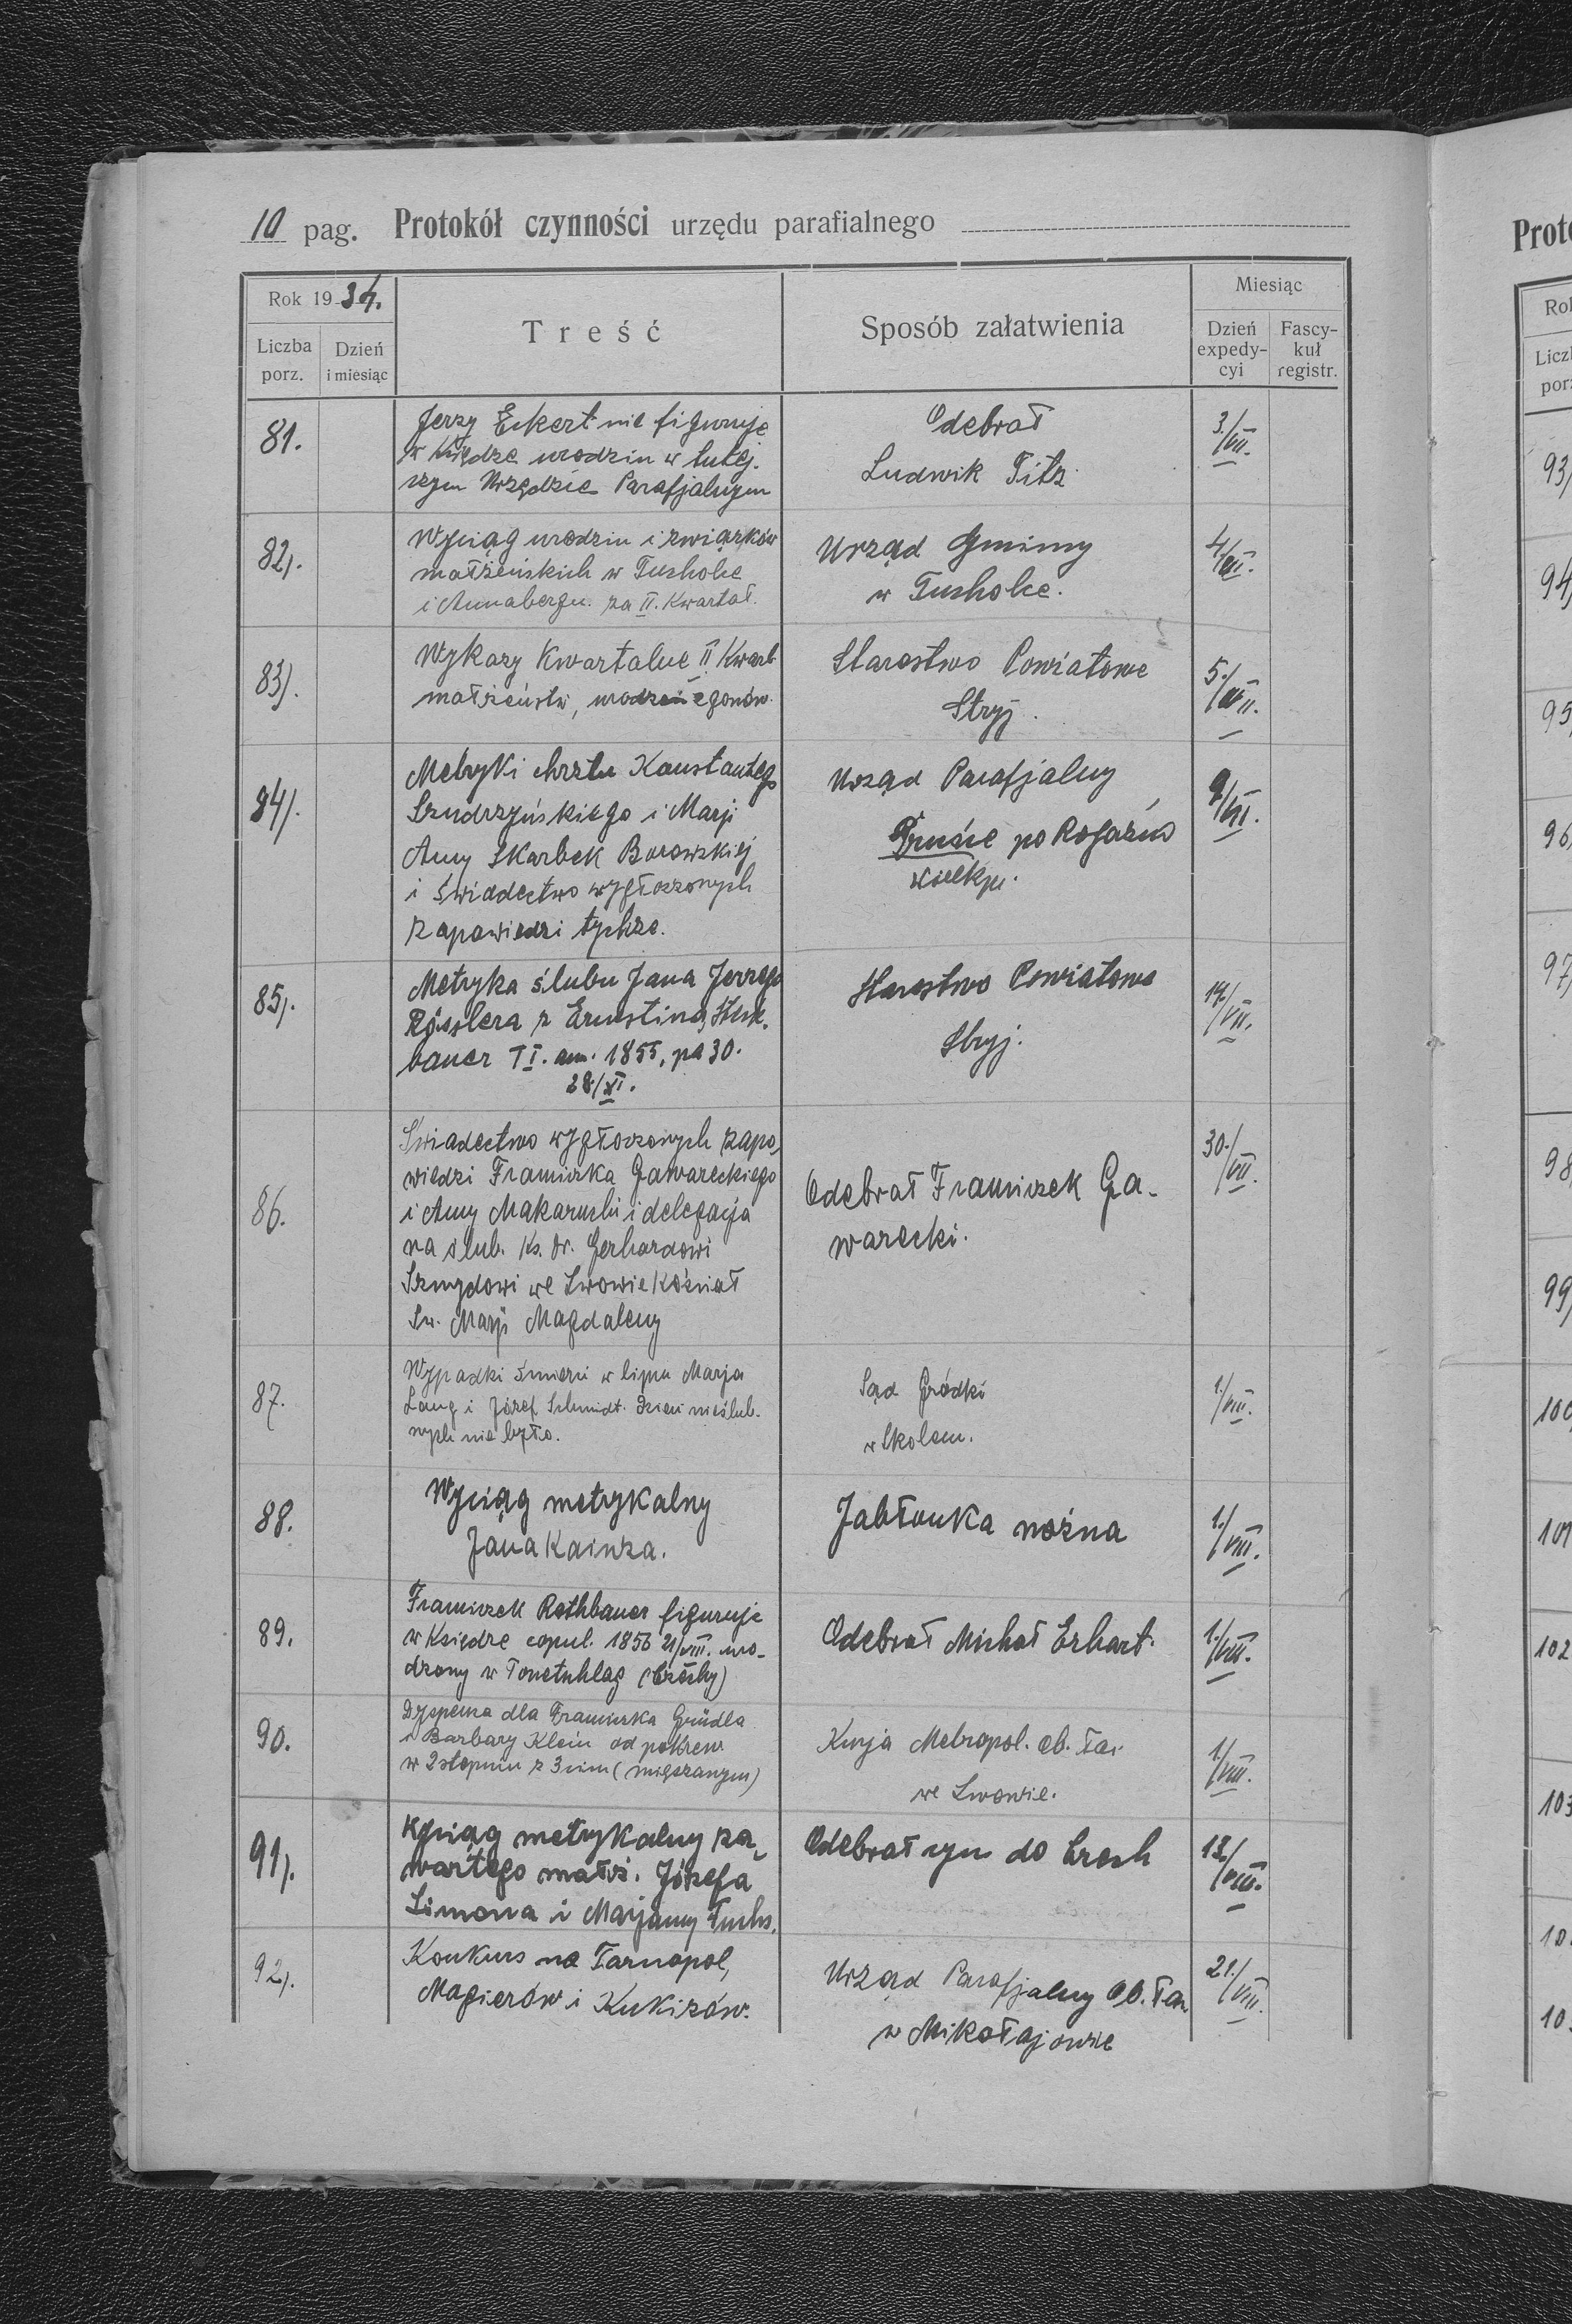 10 pag. Protokół czynności urzędu parafialnego
Rok 1934.
Liczba porz.
Dzień i miesiąc
Treść
Sposób załatwienia
Miesiąc
Dzień expedycyi
Fascykuł registr.
81.
Jerzy Eckert nie figuruje
w Księdze urodzin w tutej.
szym Urzędzie Parafjalnym
Odebrał
Ludwik Titz
3./VII.
82).
Wyciąg urodzin i związków
małżeńskich w Tucholce
i Annabergu. za II. Kwartał.
Urząd Gminny
w Tucholce.
4/VII.
83).
Wykazy Kwartalne II Kwart
małżeństw, urodzeń zgonów.
Starostwo Powiatowe
Stryj.
5./VII.
84).
Metryki chrztu Konstantego
Szudrzyńskiego i Marji
Anny Skarbek Borowskiej
i świadectwo wygłoszonych
zapowiedzi tychże.
Urząd Parafjalny
po Rogoźno
wielkp.
9/VII.
85).
Metryka ślubu Jana Jerzego
Rösslera z Ernestiną
bauer T I. ann. 1855, pa 30.
28/XI.
Starostwo Powiatowe
Stryj.
14./VII.
86.
Świadectwo wygłoszonych zapo,
wiedzi Franciszka Gawareckiego
i Anny Makaruchi i delegacja
na ślub. Ks. Dr. Gerhardowi
Szmydowi we Lwowie Kościoł
Św. Marji Magdaleny
Odebrał Franciszek Ga-
warecki.
30./VII.
87.
Wypadki śmierci w lipcu Marja
Lang i Józef Schmidt. Dzieci nieślub.
nych nie było.
Sąd Grodzki
w Skolem.
1./VIII.
88.
Wyciąg metrykalny
Jana Kainza.
Jabłonka nożna
1./VIII.
89.
Franciszek Rothbauer figuruje
w Księdze copul. 1856 21/VIII. uro-
dzony w (Czechy)
Odebrał Michał Erhart.
1./VIII.
90.
Dyspensa dla Franciszka Gründla
i Barbary Klein od pokrew
w 2 stopniu z 3 cim (mięszanym)
Kurja Metropol. ob. łac.
we Lwowie.
1./VIII.
91).
Wyciąg metrykalny za,
wartego małż. Józefa
Simona i Marjanny Fuchs.
Odebrał syn do Czech
12./VIII.
92).
Konkurs na Tarnopol,
Magierów i Kukizów.
Urząd Parafjalny Ob. łac.
w Mikołajowie
21./VIII.
Proto
Ro
Licz
por
93/
94/
95
96,
97,
98
99,
100
101
102
103
10
10